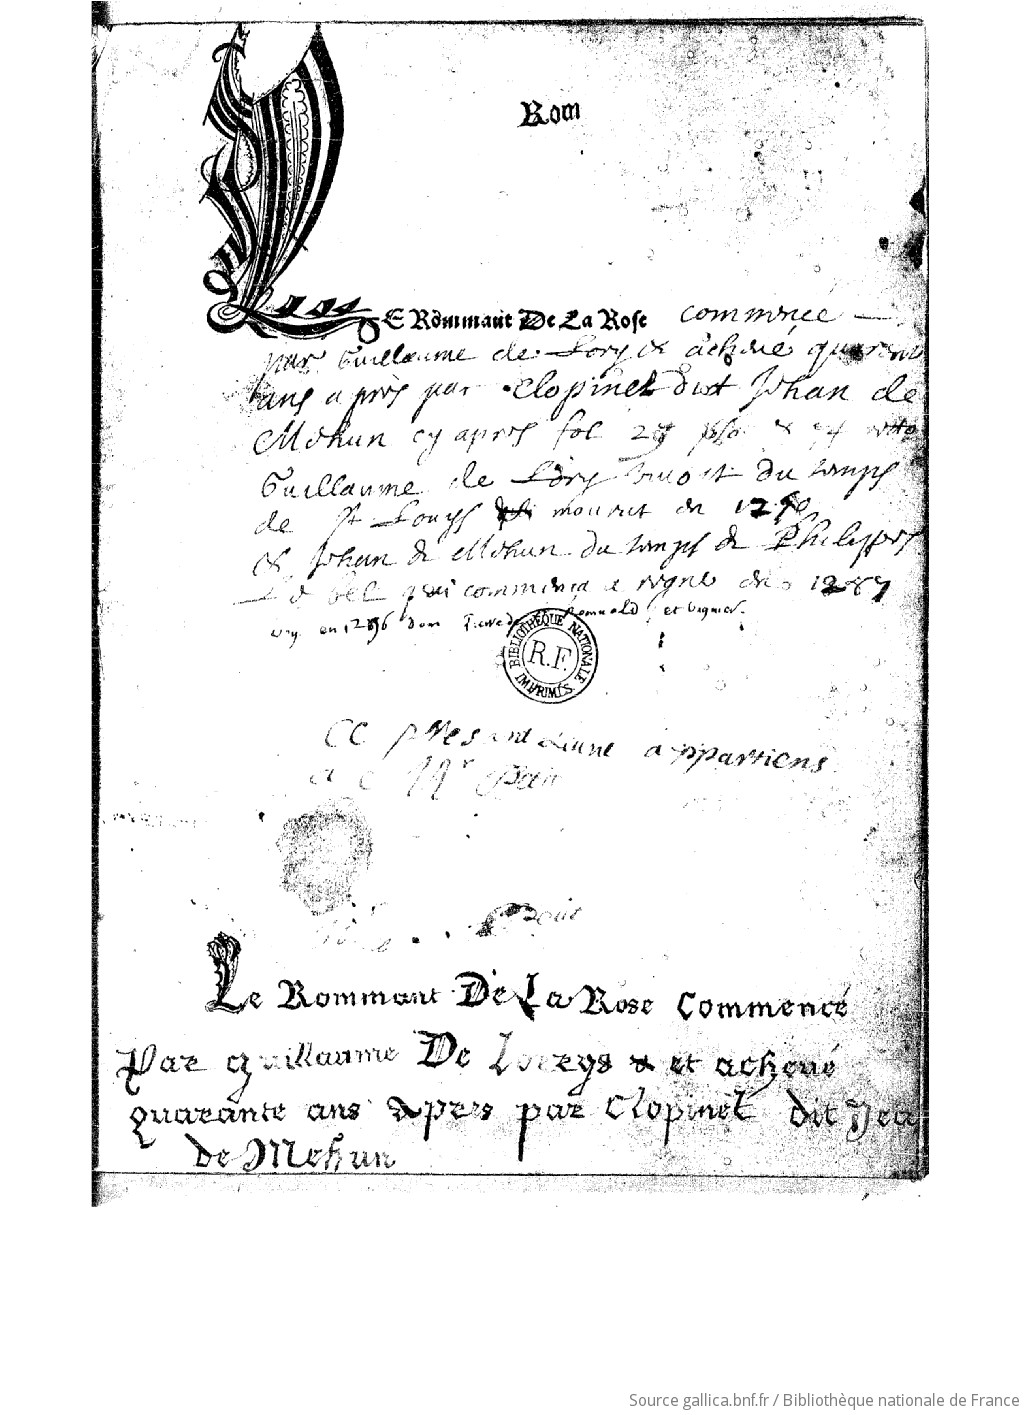 Rom
LE Rommant De La Rose commencé
par Guillaume de Lory & achevé quarente
ans après par Clopinel dict Jehan de
Mehun cy apres fol 29
Guillaume de Lory vivoit du temps
de St Louys mourut en
& Jehan de Mehun du temps de Philippes
Le bel qui commença a regner en 1287
en 1286 dom Pierre de Romuald et Vignier.
BIBLIOTHÈQUE NATIONALE
R.F.
IMPRIMÉS
CC present Livre appartiens
a Mr
Le Rommant De La Rose Commencé
Par guillaume De Lorrys & et achevé
quarante ans apres par Clopinel dit Jea
de Mehun
Source gallica.bnf.fr / Bibliothèque nationale de France